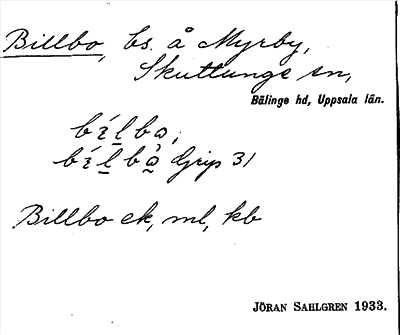 Billbo, bs. å Myrby,
Skuttunge sn,
Bälinge hd, Uppsala län.
bíḻbo,
bíḻbò̰ Grip 31
Billbo ek, ml, kb
JÖRAN SAHLGREN 1933.